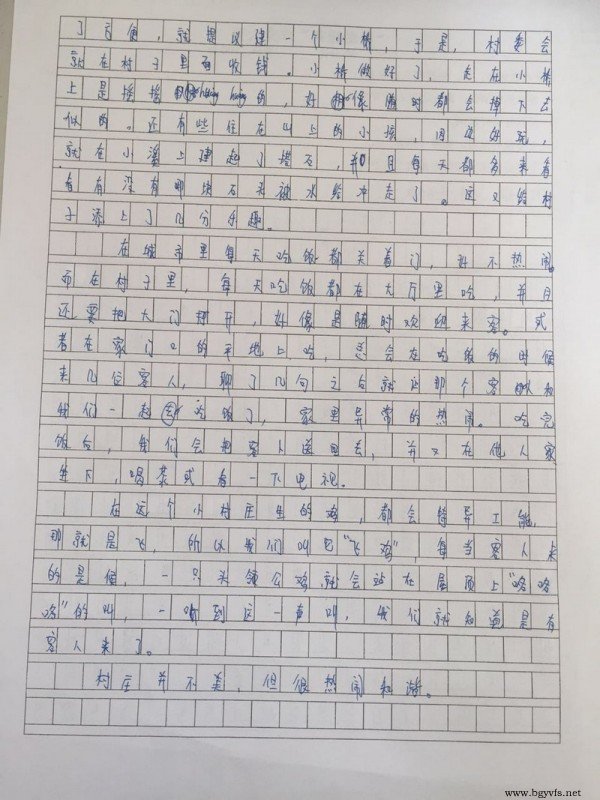 了方便，就提议建一个小桥，于是，村委会
就在村子里面收钱。小桥做好了，走在小桥
上是摇摇huang huang的，好像随时都会掉下去
似的。还有些住在山上的小孩，因为好玩，
就在小溪上建起了搭石，并且每天都多来看
看有没有哪块石头被水给冲走了。这又给村
子添上了几分乐趣。
在城市里每天吃饭都关着门，好不热闹。
而在村子里，每天吃饭都在大厅里吃，并且
还要把大门打开，好像是随时欢迎来客。或
者在家门口的平地上吃，总会在吃饭的时候
来几位客人，聊了几句之后就还那个客 和
我们一起吃饭了，家里异常的热闹。吃完
饭后，我们会把客人送回去，并又在他人家
坐下，喝茶或看一下电视。
在这个小村庄里的鸡，都会特异工能，
那就是飞，所以我们叫它“飞鸡”，每当客人来
的是候，一只头领公鸡就会站在屋顶上“咯咯
咯”的叫，一听到这一声叫，我们就知道是有
客人来了。
村庄并不美，但很热闹和谐。
www.bgyvfs.net